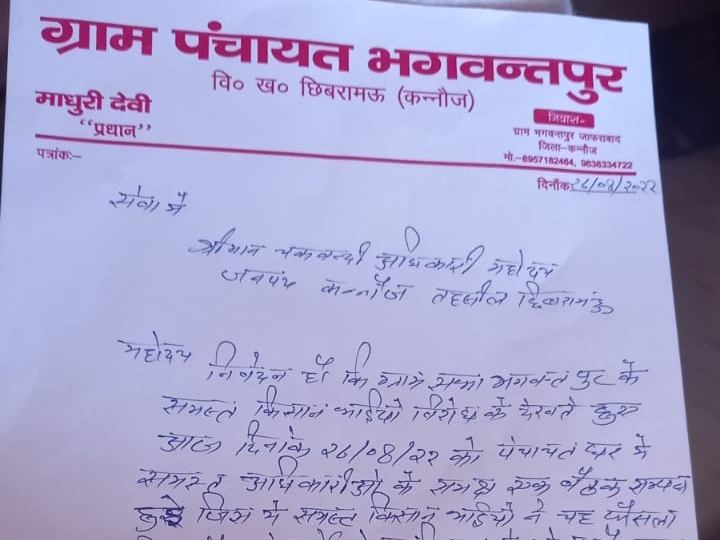 ग्राम पंचायत भगवन्तपुर
वि० ख० छिबरामऊ (कन्नौज)
माधुरी देवी
“प्रधान”
निवास-
ग्राम भगवन्तपुर जाफराबाद
जिला-कन्नौज
मो.-8957182464, 9838334722
पत्रांक:–
दिनाँक 26/08/2022
सेवा मे
श्रीमान चकबन्दी अधिकारी महोदय
जनपद कन्नौज तहसील छिबरामऊ
महोदय
निवेदन है कि ग्राम सभा भगवन्त पुर के
समस्त किसान भाईयो विरोध के देखते हुए
आज दिनांक 26/08/22 को पंचायत घर मे
समस्त अधिकारीओ के समक्ष एक बैठक सम्पन्न
हुई जिस मे समस्त किसान भाईयो ने यह फैसला